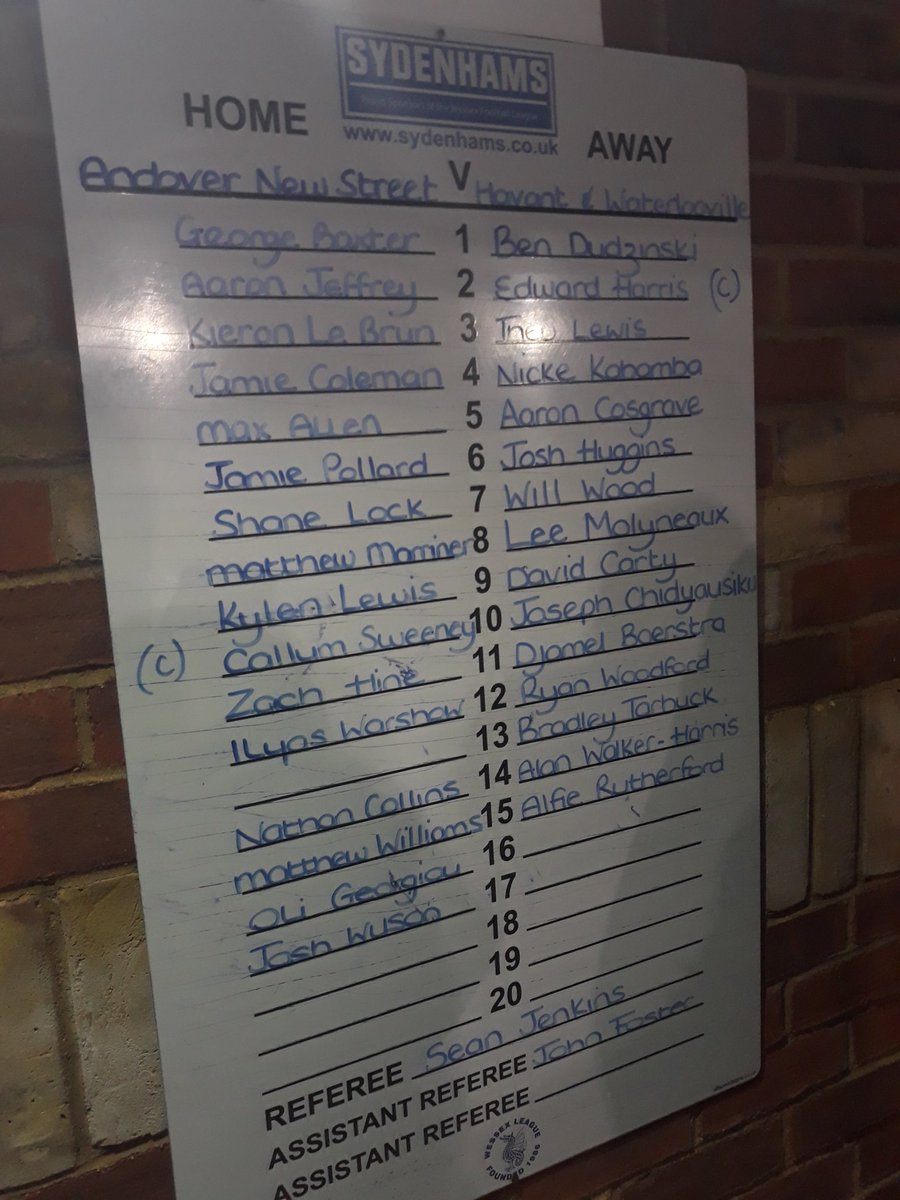 SYDENHAMS
Proud Sponsors of the Wessex Football League
www.sydenhams.co.uk
HOME AWAY
Andover New Street V Havant & Waterlooville
George Baxter 1 Ben Dudzinski
Aaron Jeffrey 2 Edward Harris (C)
Kieron Le Brun 3 Lewis
Jamie Coleman 4 Nicke Kabamba
Max Allen 5 Aaron Cosgrave
Jamie Pollard 6 Josh Huggins
Shane Lock 7 Will Wood
Matthew Marriner 8 Lee Molyneaux
Kylen Lewis 9 David Carty
(C) Callum Sweeney 10 Joseph Chidyausiku
Zach Hine 11 Djamel Boerstra
Ilyas Warshaw 12 Ryan Woodford
13 Bradley Tarbuck
Nathan Collins 14 Alan Walker-Harris
Matthew Williams 15 Alfie Rutherford
Oli Georgiou 16
Josh Wilson 17
18
19
20
REFEREE Sean Jenkins
ASSISTANT REFEREE John Foster
ASSISTANT REFEREE
WESSEX LEAGUE
FOUNDED 1986